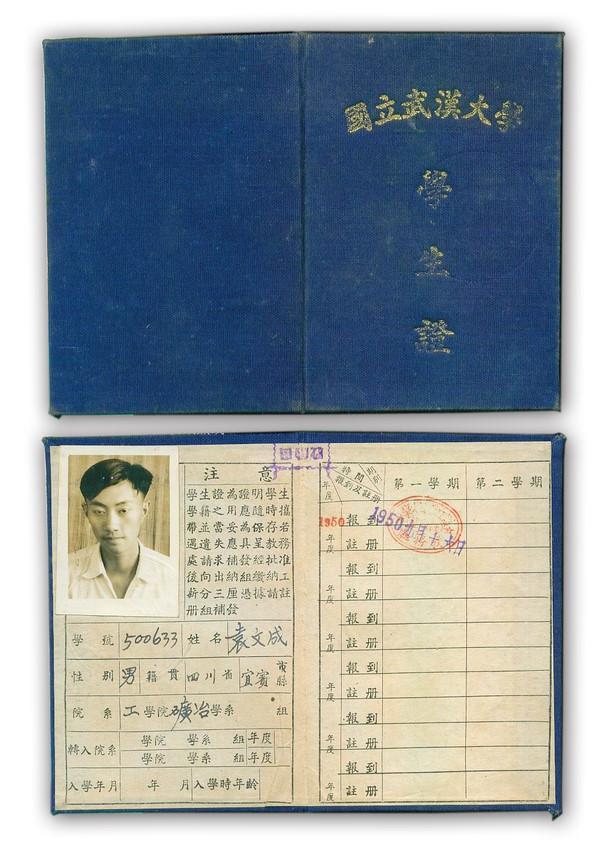 國立武漢大學
學生證
注意
學生證為證明學生
學籍之用應隨時攜
帶並當妥為保存若
遇遺失應具呈教務
處請求補發經批准
後向出納組繳納工
薪分三厘憑據請註
冊組補發
學號 500633 姓名 袁文成
性別 男 籍貫 四川省 宜賓 縣
院系 工學院礦冶學系 組
轉入院系 學院 學系 組 年度
學院 學系 組 年度
入學年月 年 月 入學時年齡
年度 時間 報到及註冊 第一學期 第二學期
1950 報到 1950
年度 註冊
報到
年度 註冊
報到
年度 註冊
報到
年度 註冊
報到
年度 註冊
報到
年度 註冊